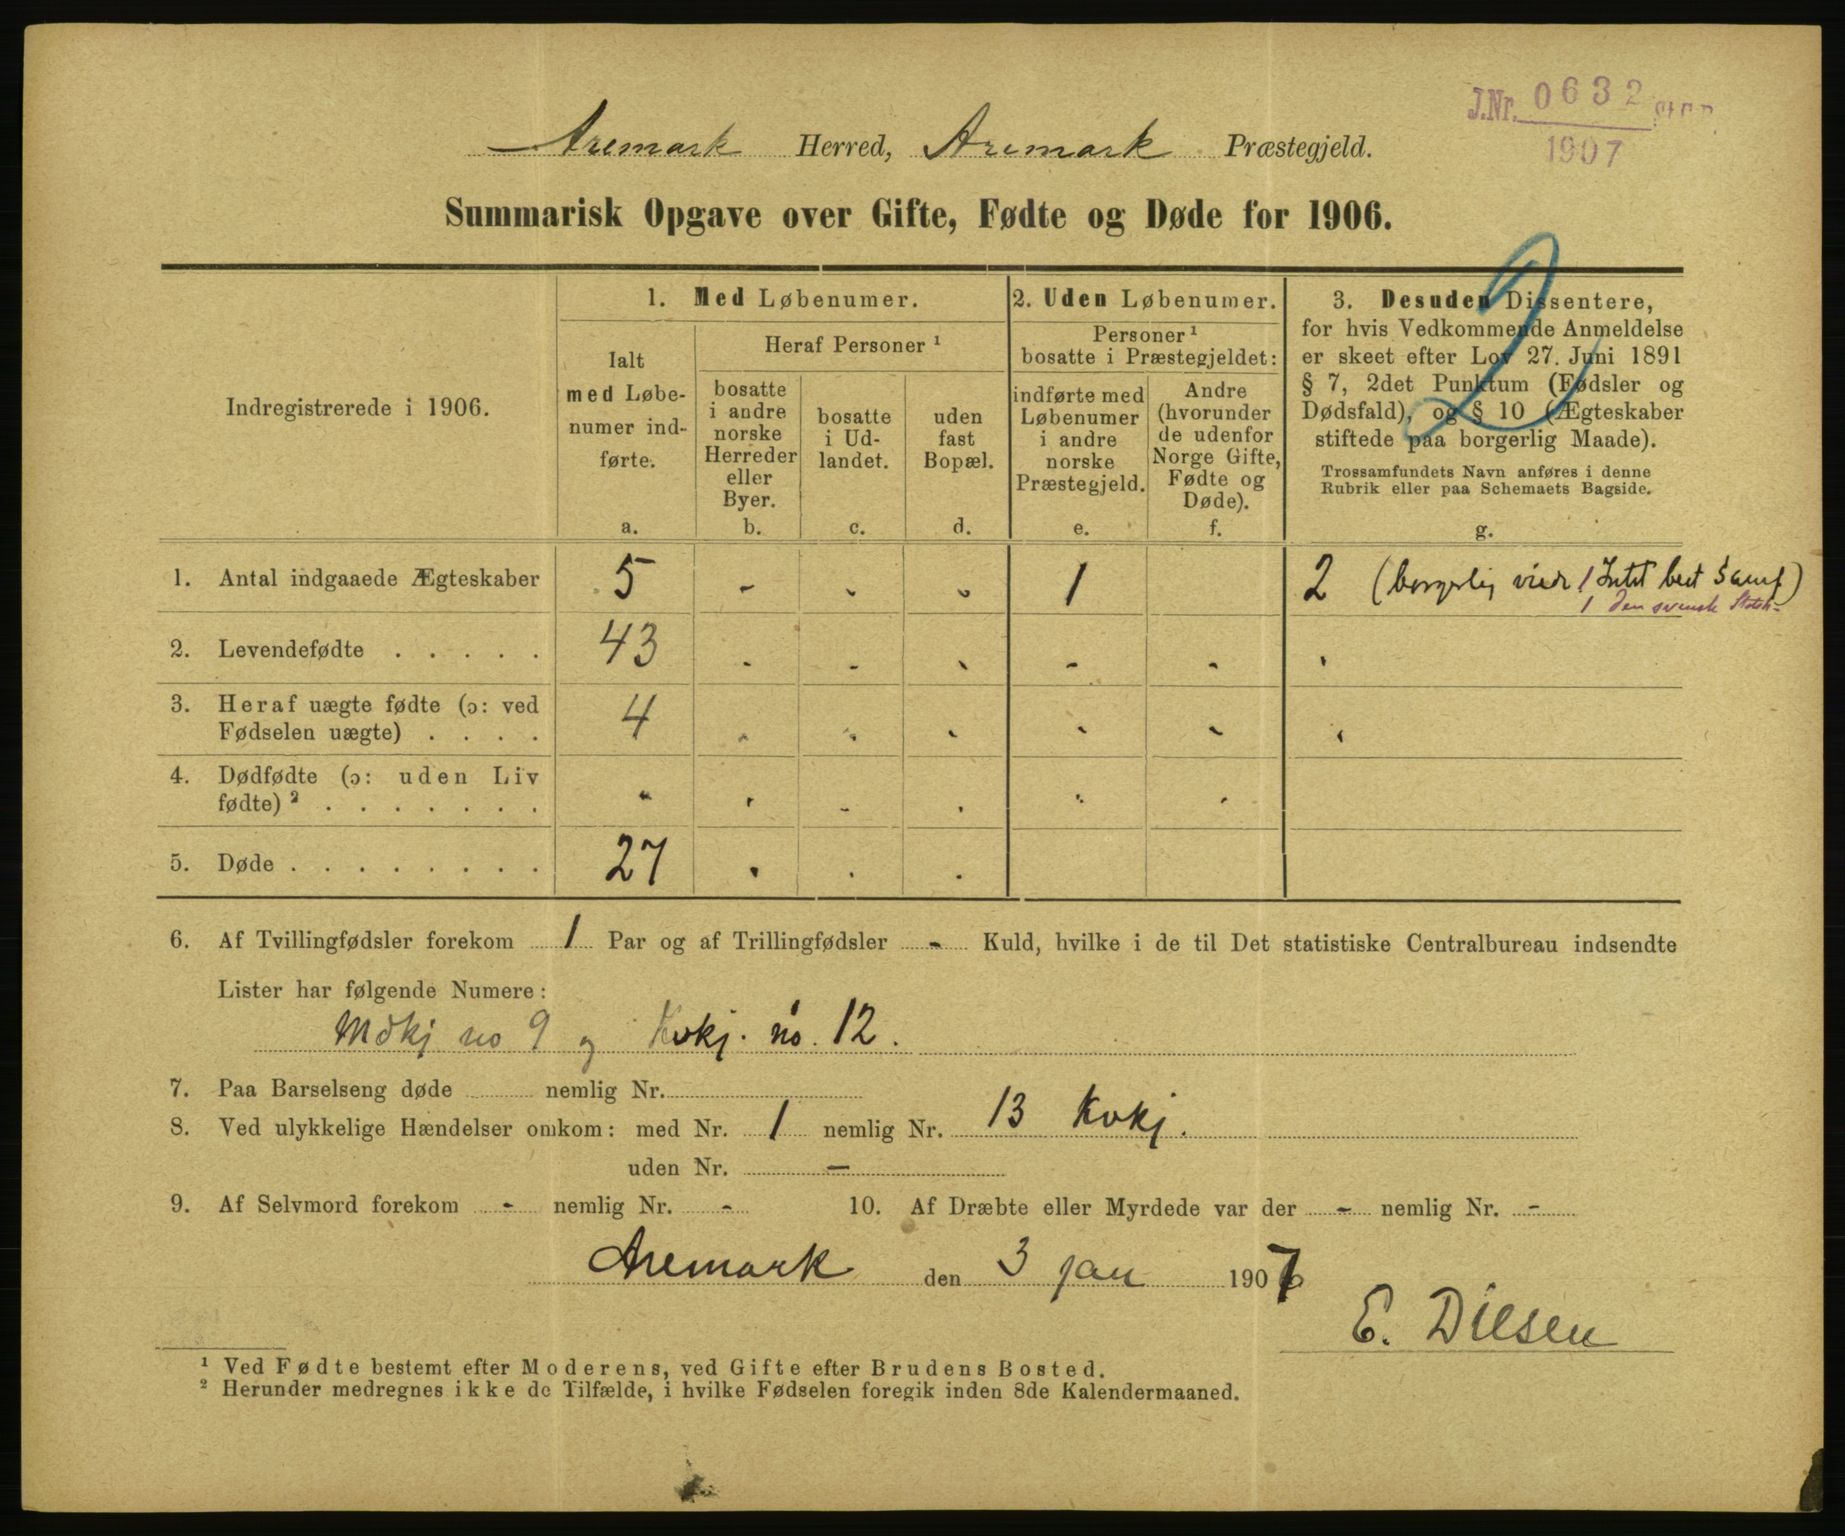 J.Nr. 0632 St.C.B.
1907
Aremark Herred, Aremark Præstegjeld.
Summarisk Opgave over Gifte, Fødte og Døde for 1906.
2
Indregistrerede i 1906.
1. Med Løbenumer.
Ialt
med Løbe-
numer ind-
førte.
a.
Heraf Personer ¹
bosatte
i andre
norske
Herreder
eller
Byer.
b.
bosatte
i Ud-
landet.
c.
uden
fast
Bopæl.
d.
2. Uden Løbenumer.
Personer ¹
bosatte i Præstegjeldet:
indførte med
Løbenumer
i andre
norske
Præstegjeld.
e.
Andre
(hvorunder
de udenfor
Norge Gifte,
Fødte og
Døde).
f.
3. Desuden Dissentere,
for hvis Vedkommende Anmeldelse
er skeet efter Lov 27. Juni 1891
§ 7, 2det Punktum (Fødsler og
Dødsfald), og § 10 (Ægteskaber
stiftede paa borgerlig Maade).
Trossamfundets Navn anføres i denne
Rubrik eller paa Schemaets Bagside.
g.
1. Antal indgaaede Ægteskaber 5 - - - 1 2 (borgerlig viede 1 Intet best Samf)
1 Den svensk Statsk-
2. Levendefødte . . . . . 43 - - - - - -
3. Heraf uægte fødte (ɔ: ved
Fødselen uægte) . . . . 4 - - - - - -
4. Dødfødte (ɔ: uden Liv
fødte) ² . . . . . . . - - - - - -
5. Døde . . . . . . . . 27 - - -
6. Af Tvillingfødsler forekom 1 Par og af Trillingfødsler - Kuld, hvilke i de til Det statistiske Centralbureau indsendte
Lister har følgende Numere:
Mdkj no 9 og Kvkj. no. 12.
7. Paa Barselseng døde nemlig Nr.
8. Ved ulykkelige Hændelser omkom: med Nr. 1 nemlig Nr. 13 Kvkj.
uden Nr. -
9. Af Selvmord forekom - nemlig Nr. - 10. Af Dræbte eller Myrdede var der - nemlig Nr. -
Aremark den 3 jan 1907
E. Diesen
¹ Ved Fødte bestemt efter Moderens, ved Gifte efter Brudens Bosted.
² Herunder medregnes ikke de Tilfælde, i hvilke Fødselen foregik inden 8de Kalendermaaned.